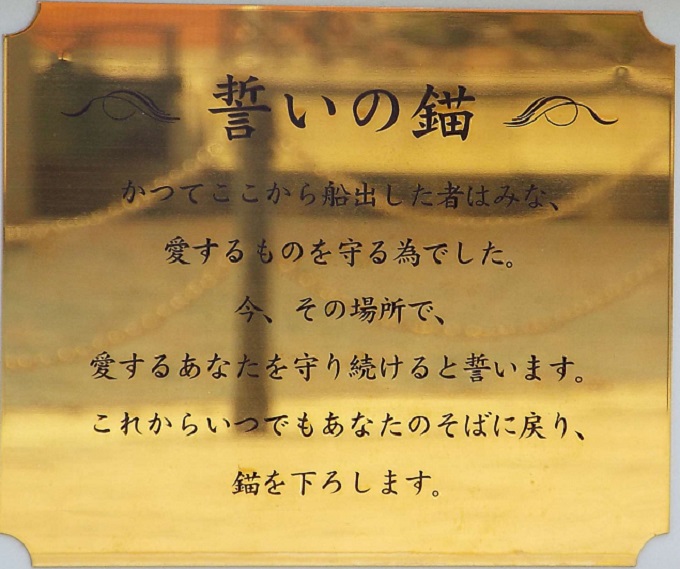 誓いの錨
かつてここから船出した者はみな、
愛するものを守る為でした。
今、その場所で、
愛するあなたを守り続けると誓います。
これからいつでもあなたのそばに戻り、
錨を下ろします。